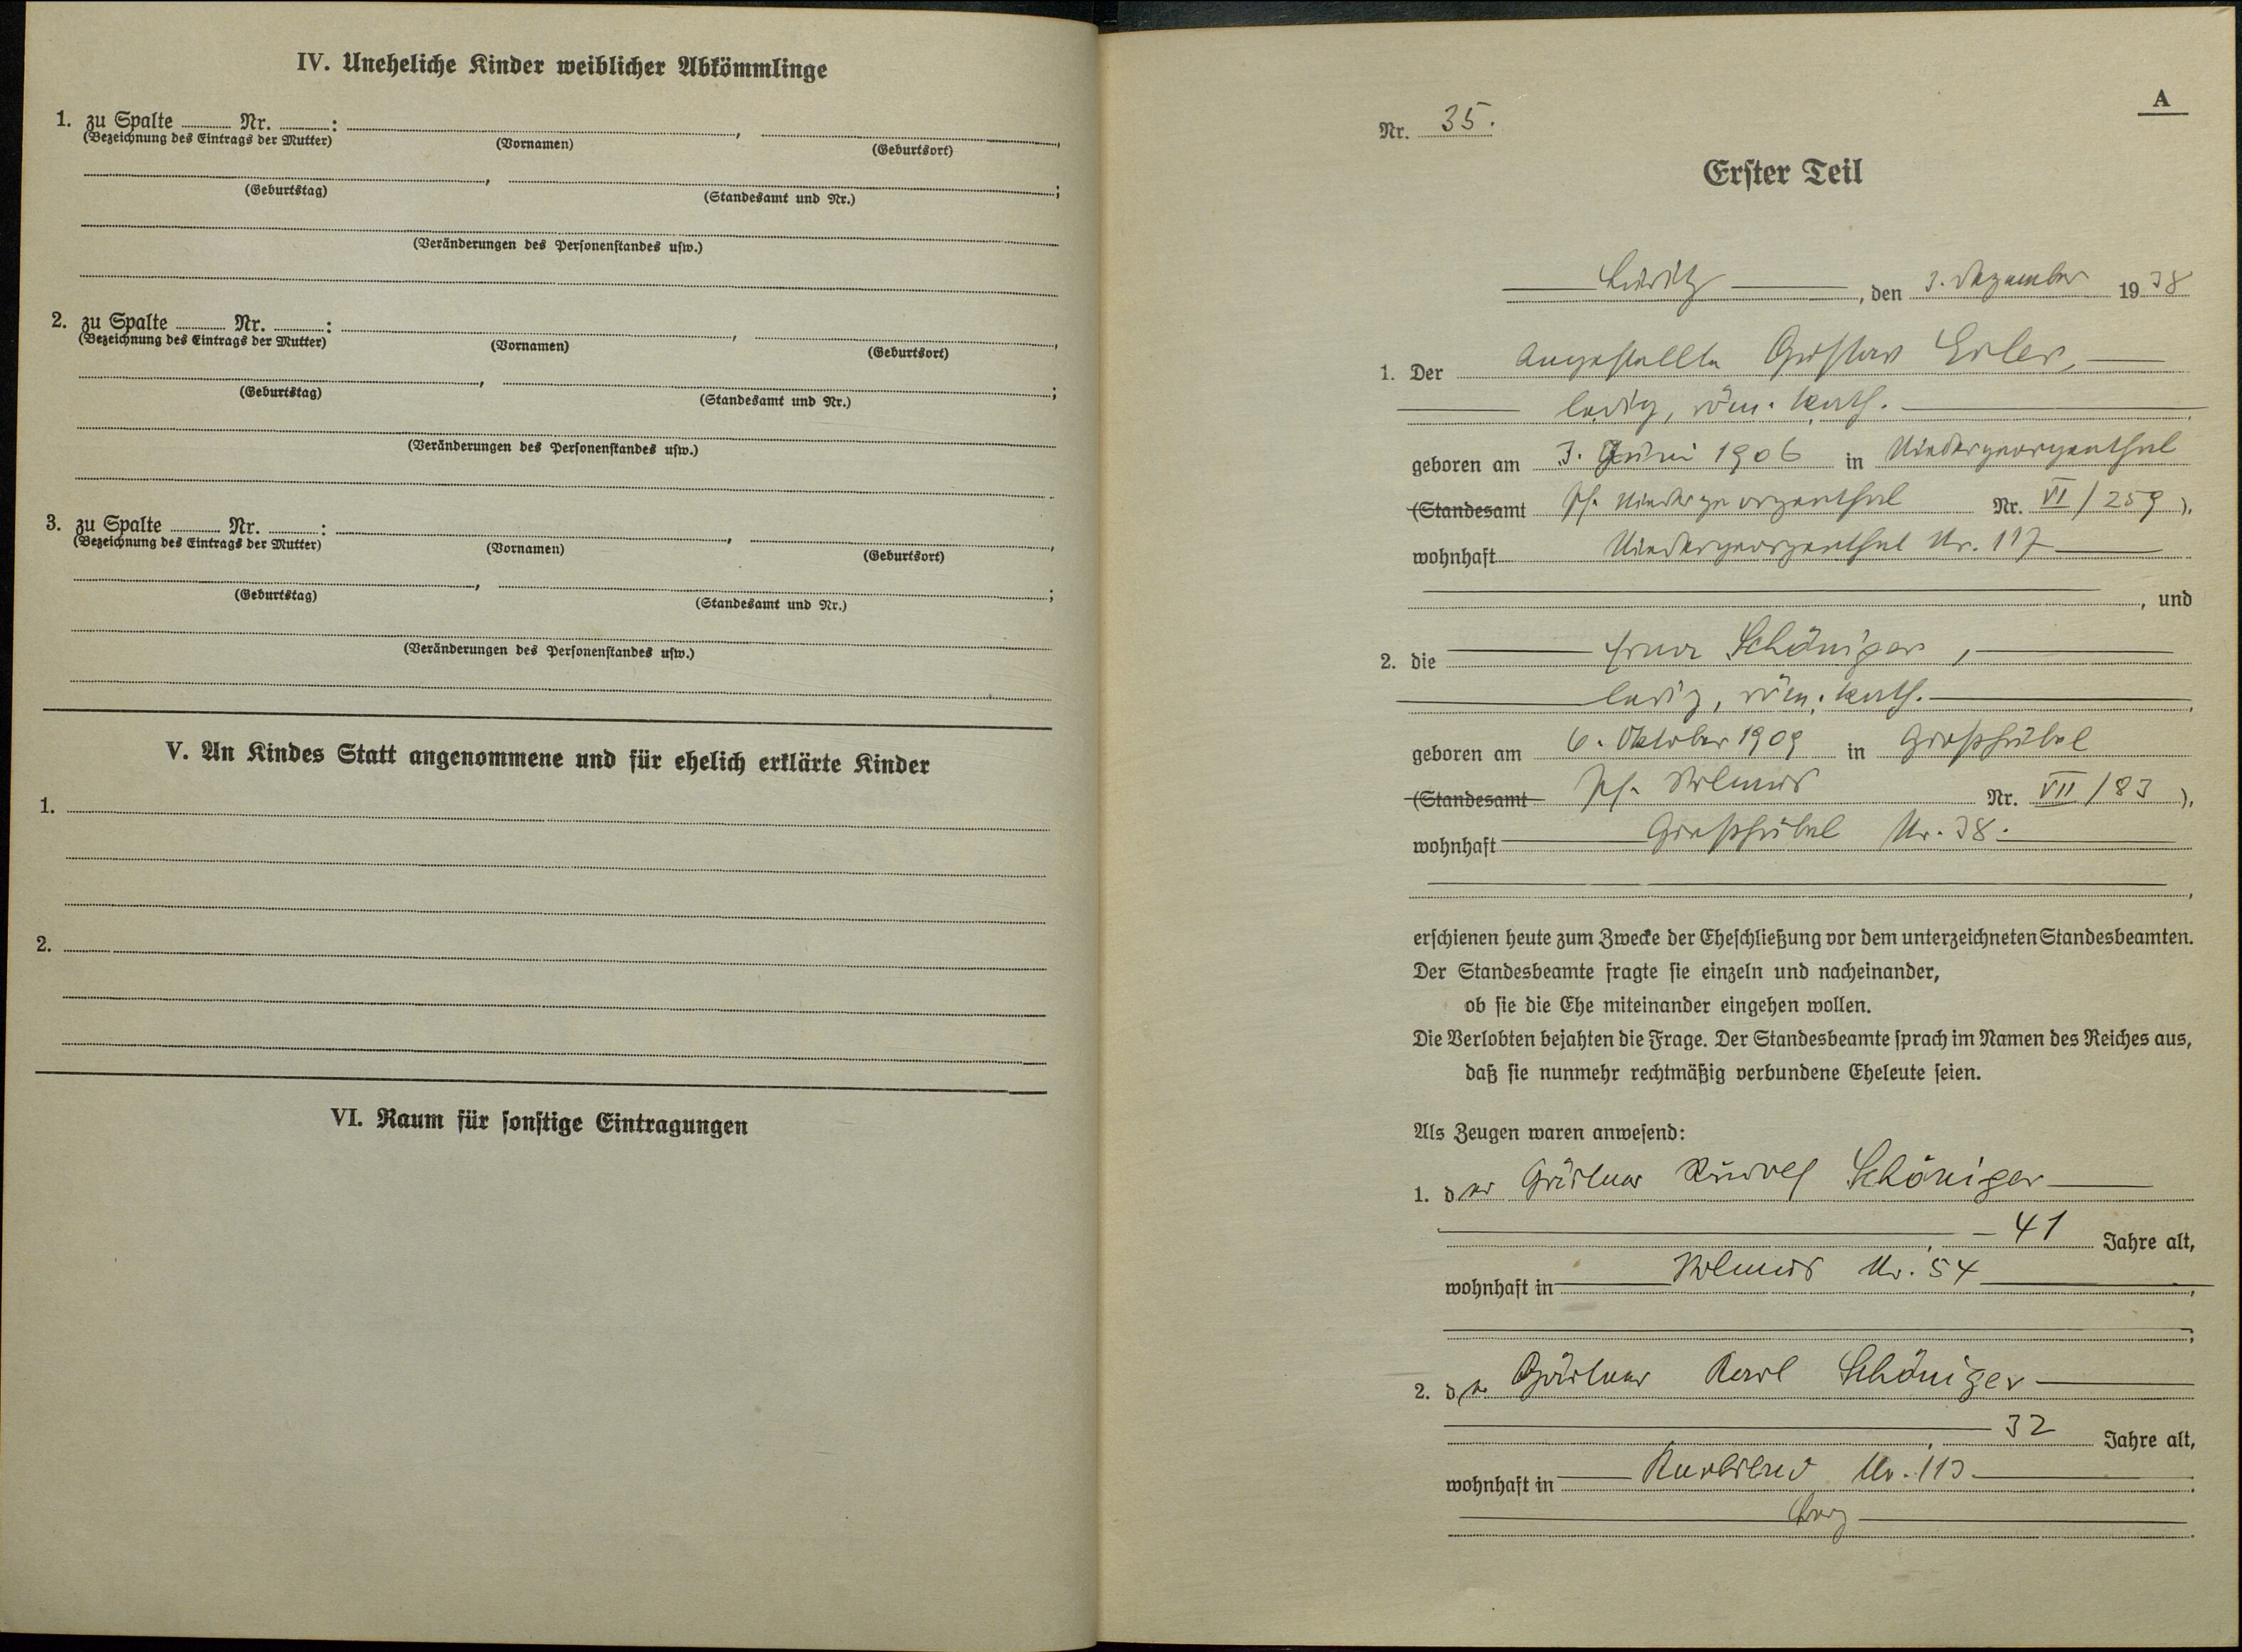 IV. Uneheliche Kinder weiblicher Abkömmlinge
1. zu Spalte ........ Nr. ........:
(Bezeichnung des Eintrags der Mutter) (Vornamen) (Geburtsort)
(Geburtstag) (Standesamt und Nr.)
(Veränderungen des Personenstandes usw.)
2. zu Spalte ........ Nr. ........:
(Bezeichnung des Eintrags der Mutter) (Vornamen) (Geburtsort)
(Geburtstag) (Standesamt und Nr.)
(Veränderungen des Personenstandes usw.)
3. zu Spalte ........ Nr. ........:
(Bezeichnung des Eintrags der Mutter) (Vornamen) (Geburtsort)
(Geburtstag) (Standesamt und Nr.)
(Veränderungen des Personenstandes usw.)
V. An Kindes Statt angenommene und für ehelich erklärte Kinder
1.
2.
VI. Raum für sonstige Eintragungen
A
Nr. 35.
Erster Teil
, den 3. Dezember 1938
1. Der Angestellte Gustav Erler,
ledig, röm. kath.
geboren am 3. Juni 1906 in Niedergeorgenthal
(Standesamt Pf. Niedergeorgenthal Nr. VI/259),
wohnhaft Niedergeorgenthal Nr. 117
, und
2. die Erna Schöniger,
ledig, röm. kath.
geboren am 6. Oktober 1909 in Großhübel
(Standesamt Pf. Nr. VII/83),
wohnhaft Großhübel Nr. 38.
erschienen heute zum Zwecke der Eheschließung vor dem unterzeichneten Standesbeamten.
Der Standesbeamte fragte sie einzeln und nacheinander,
ob sie die Ehe miteinander eingehen wollen.
Die Verlobten bejahten die Frage. Der Standesbeamte sprach im Namen des Reiches aus,
daß sie nunmehr rechtmäßig verbundene Eheleute seien.
Als Zeugen waren anwesend:
1. der Gärtner Rudolf Schöniger
41 Jahre alt,
wohnhaft in Nr. 54
2. der Gärtner Karl Schöniger
32 Jahre alt,
wohnhaft in Nr. 113